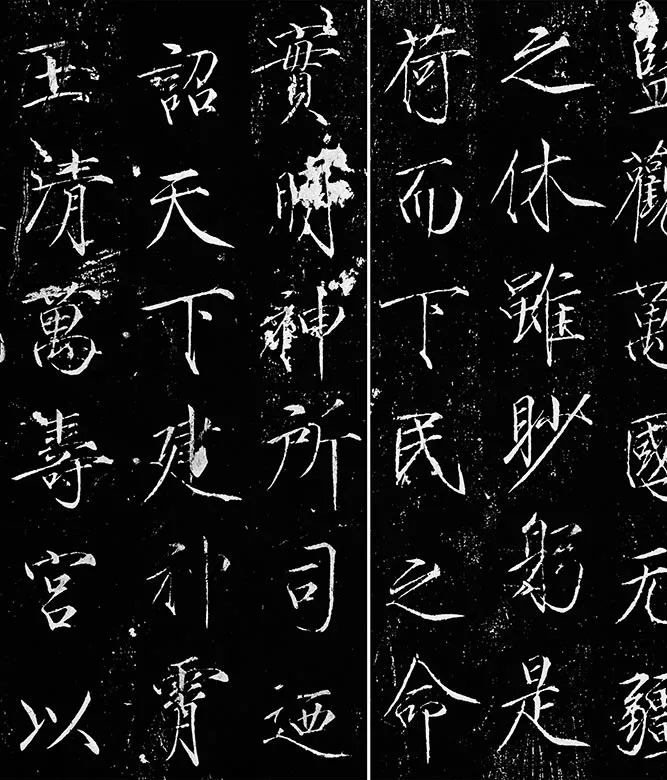 監觀萬國无疆
之休雖眇躬是
荷而下民之命
實明神所司迺
詔天下建神霄
玉清萬壽宮以